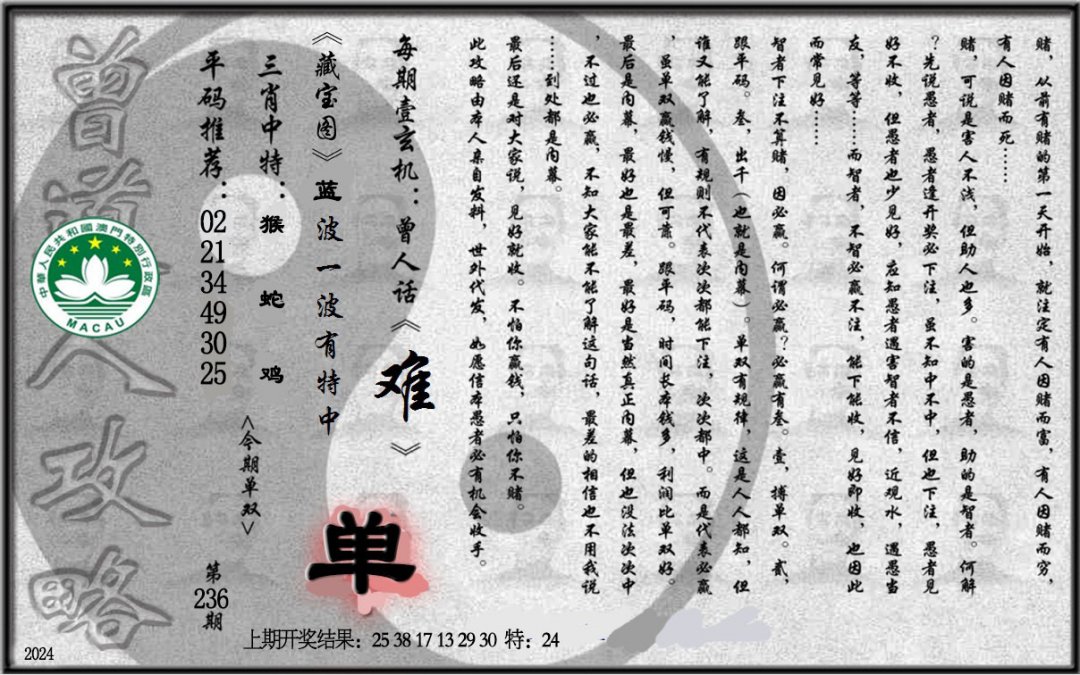 赌，从前有赌的第一天开始，就注定有人因赌而富，有人因赌而穷，
有人因赌而死……
赌，可说是害人不浅，但助人也多。害的是愚者，助的是智者。何解
？先说愚者，愚者逢开奖必下注，虽不知中不中，但也下注，愚者见
好不收，但愚者也少见好，应知愚者遇害智者不信，近观水，遇愚当
友，等等……而智者，不智必赢不注，能下能收，见好即收，也因此
而常见好……
智者下注不算赌，因必赢。何谓必赢？必赢有叁。壹，搏单双。贰，
跟平码。叁，出千（也就是内幕）。单双有规律，这是人人都知，但
谁又能了解，有规则不代表次次都能下注，次次都中。而是代表必赢
，虽单双赢钱慢，但可靠。跟平码，时间长本钱多，利润比单双好。
最后是内幕，最好也是最差，最好是当然真正内幕，但也没法次次中
，不过也必赢，不知大家能不能了解这句话，最差的相信也不用我说
……到处都是内幕。
最后还是对大家说，见好就收。不怕你赢钱，只怕你不赌。
此攻略由本人亲自发料，世外代发，如愿信本愚者必有机会收手。
每期壹玄机：曾人话《难》
《藏宝图》蓝波一波有特中
三肖中特：猴 蛇 鸡
平码推荐：02 21 34 49 30 25
<今期单双>
单
第236期
曾道人攻略
中華人民共和國澳門特別行政區
MACAU
上期开奖结果：25 38 17 13 29 30 特：24
2024